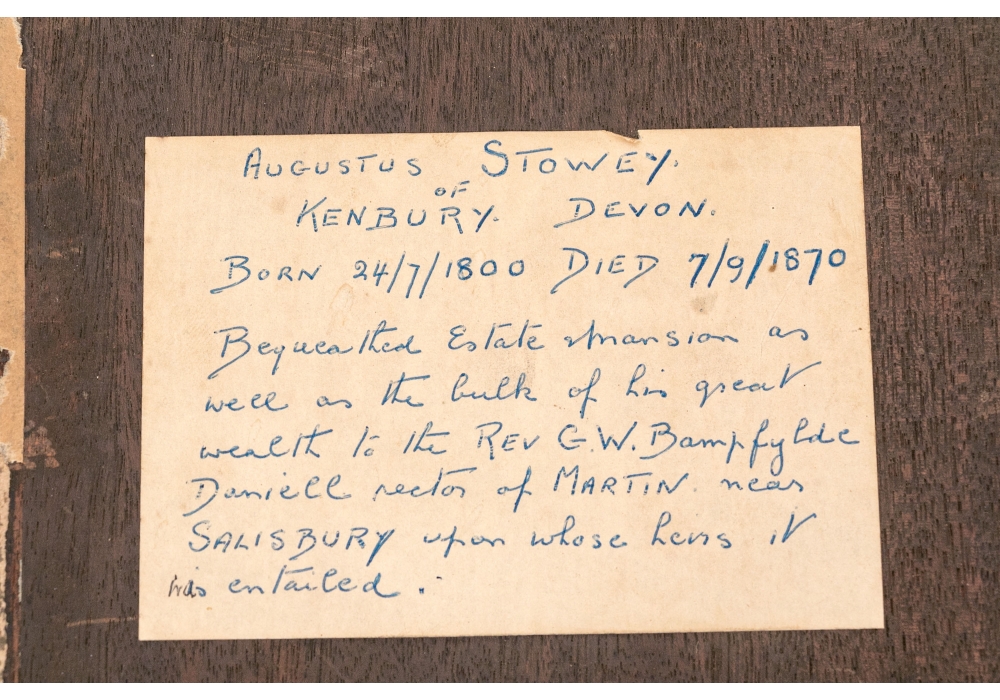 AUGUSTUS STOWEY.
OF
KENBURY. DEVON.
BORN 24/7/1800 DIED 7/9/1870
Bequeathed Estate & mansion as
well as the bulk of his great
wealth to the REV G.W. Bampfylde
Daniell rector of MARTIN near
SALISBURY upon whose heirs it
was entailed.